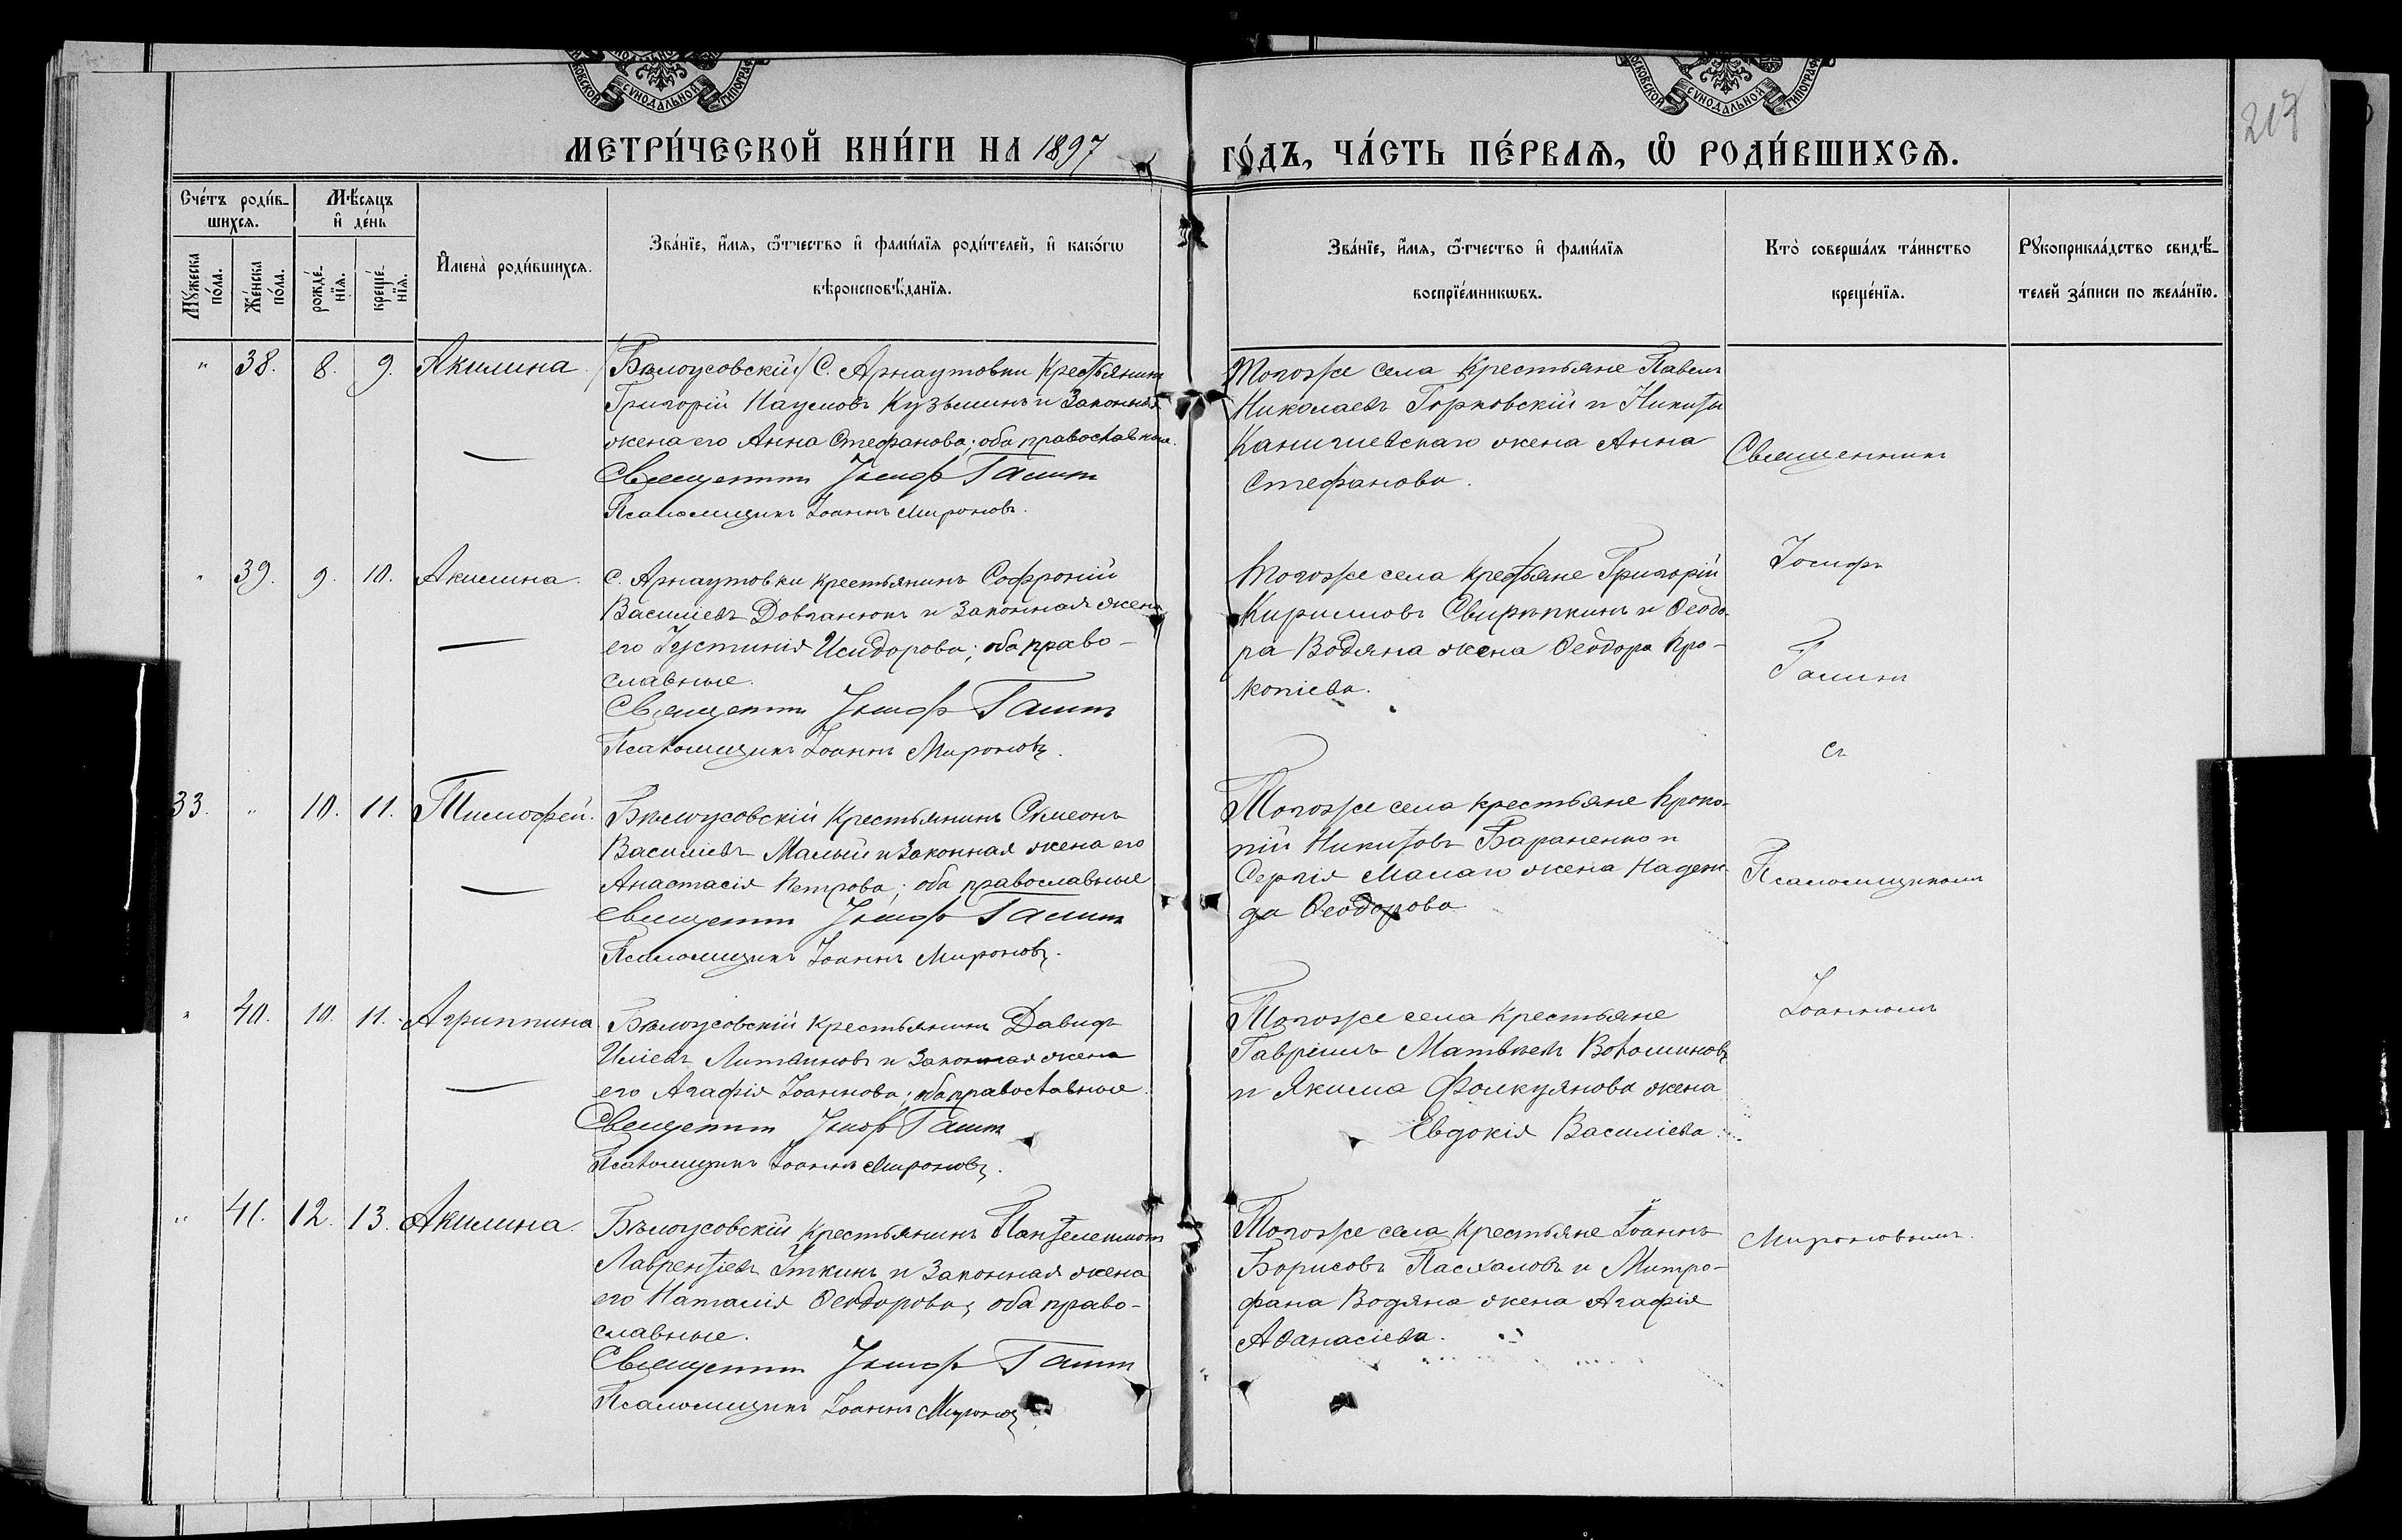 МЕТРИ́ЧЕСКОЙ КНИ́ГИ НА 1897
ГО́ДЪ, ЧА́СТЬ ПЕ́РВАѦ, Ѡ҆ РОДИ́ВШИХСѦ.
217
Сче́тъ роди́в-
шихсѧ.
Мѣ́сѧцъ
и҆ де́нь
Мꙋ́жеска
по́ла.
Же́нска
по́ла.
рожде́-
нїѧ.
креще́-
нїѧ.
И҆мена̀ роди́вшихсѧ.
Зва́нїе, и҆́мѧ, ѻ҆́тчество и҆ фами́лїѧ роди́телей, и҆ како́гѡ
вѣроисповѣ́данїѧ.
Зва́нїе, и҆́мѧ, ѻ҆́тчество и҆ фами́лїѧ
воспрїе́мникѡвъ.
Кто̀ соверша́лъ та́инство
креще́нїѧ.
Рꙋкоприкла́дство свидѣ́-
телей за́писи по жела́нїю.
" 38. 8. 9. Акилина.
/Бѣлоусовскій/ С. Арнаутовки Крестьянинъ
Григорій Наумовъ Кузьминъ и Законная
жена его Анна Стефанова; оба православные.
Священникъ Іосиф Галинъ
Псаломщикъ Іоаннъ Мироновъ.
Тогоже села Крестьяне Павелъ
Николаевъ Горковскій и Никиты
жена Анна
Стефанова.
" 39. 9. 10. Акилина.
С. Арнаутовки крестьянинъ Софроній
Василіевъ Довганюкъ и Законная жена
его Іустинія Исидорова; оба право-
славные.
Священникъ Іосиф Галинъ
Псаломщикъ Іоаннъ Мироновъ.
Тогоже села Крестьяне Григорій
Кирилловъ Свирѣпкинъ и Ѳеодо-
ра Водяна жена Ѳеодора Про-
копіева.
33. " 10. 11. Тимофей.
Бѣлоусовскій Крестьянинъ Симеонъ
Василіевъ Малый и Законная жена его
Анастасія Петрова; оба православные
Священникъ Іосиф Галинъ
Псаломщикъ Іоаннъ Мироновъ.
Тогоже села крестьяне Проко-
пій Никитовъ Бараненко и
Сергія Малаго жена Надеж-
да Ѳеодорова
" 40. 10. 11. Агриппина
Бѣлоусовскій Крестьянинъ Давидъ
Иліевъ Литвиновъ и Законная жена
его Агафія Іоаннова; оба православные.
Священникъ Іосиф Галинъ
Псаломщикъ Іоаннъ Мироновъ.
Тогоже села Крестьяне
Гавріилъ Матвѣевъ Воломиновъ
и Якима жена
Евдокія Василіева.
" 41. 12. 13. Акилина.
Бѣлоусовскій Крестьянинъ Пантелеимонъ
Лаврентіевъ Уткинъ и Законная жена
его Наталія Ѳеодорова; оба право-
славные.
Священникъ Іосиф Галинъ
Псаломщикъ Іоаннъ Мироновъ
Тогоже села Крестьяне Іоаннъ
Борисовъ Пасхаловъ и Митро-
фана Водяна жена Агафія
Аѳанасіева.
Священникъ
Іосифъ
Галинъ
съ
Псаломщикомъ
Іоанномъ
Мироновымъ.